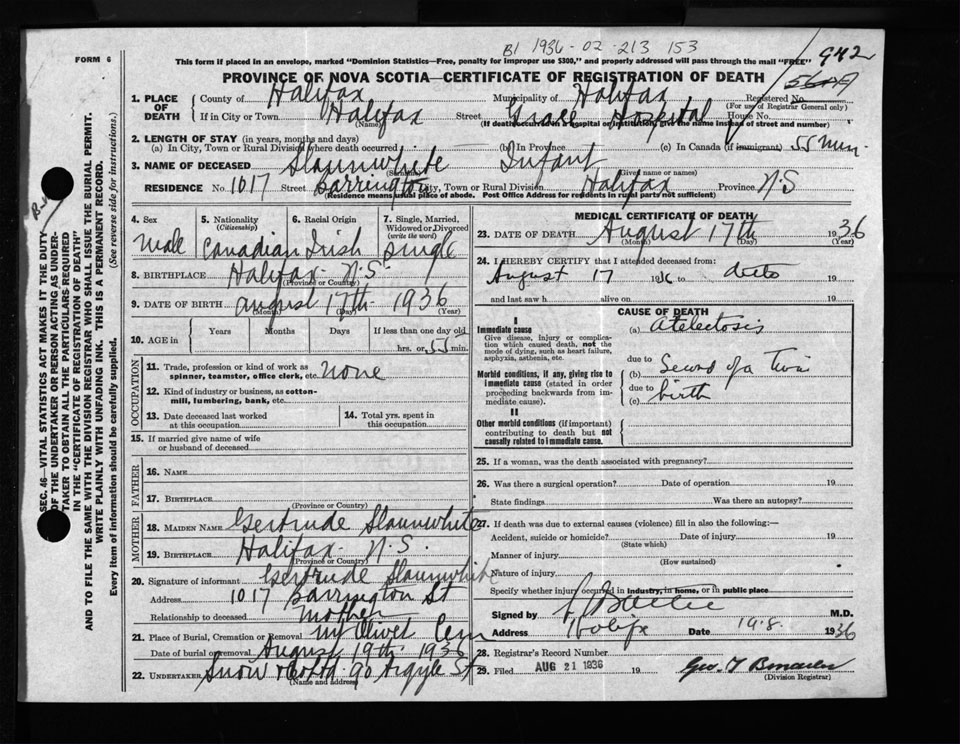 B1 1936-02-213 153
942
FORM 6
This form if placed in an envelope, marked "Dominion Statistics—Free, penalty for improper use $300," and properly addressed will pass through the mail "FREE"
PROVINCE OF NOVA SCOTIA—CERTIFICATE OF REGISTRATION OF DEATH
1. PLACE OF DEATH
County of Halifax Municipality of Halifax Registered No.
(For use of Registrar General only)
If in City or Town Halifax Street Grace Hospital House No.
(Name) (If death occurred in a hospital or institution, give the name instead of street and number)
2. LENGTH OF STAY (in years, months and days)
(a) In City, Town or Rural Division where death occurred (b) In Province (c) In Canada (if immigrant) 55 min.
3. NAME OF DECEASED Slaunwhite Infant
(Surname) (Given name or names)
RESIDENCE No. 1017 Street Barrington City, Town or Rural Division Halifax Province N.S
(Residence means usual place of abode. Post Office Address for residents in rural parts not sufficient)
4. Sex
Male
5. Nationality
(Citizenship)
Canadian
6. Racial Origin
Irish
7. Single, Married, Widowed or Divorced
(write the word)
Single
8. BIRTHPLACE Halifax N.S.
(Province or Country)
9. DATE OF BIRTH August 17th 1936
(Month) (Day) (Year)
10. AGE in
Years Months Days If less than one day old
hrs. or 55 min.
OCCUPATION
11. Trade, profession or kind of work as
spinner, teamster, office clerk, etc. None
12. Kind of industry or business, as cotton-
mill, lumbering, bank, etc.
13. Date deceased last worked
at this occupation
14. Total yrs. spent in
this occupation
15. If married give name of wife
or husband of deceased
FATHER
16. NAME
17. BIRTHPLACE
(Province or Country)
MOTHER
18. MAIDEN NAME Gertrude Slaunwhite
19. BIRTHPLACE Halifax N.S.
(Province or Country)
20. Signature of informant Gertrude Slaunwhite
Address 1017 Barrington St
Relationship to deceased Mother
21. Place of Burial, Cremation or Removal Mt Olivet Cem
Date of burial or removal August 19th 1936
22. UNDERTAKER Snow & Co Ltd 90 Argyle St
(Name and address)
MEDICAL CERTIFICATE OF DEATH
23. DATE OF DEATH August 17th 1936
(Month) (Day) (Year)
24. I HEREBY CERTIFY that I attended deceased from:
August 17 1936 to ditto 19
and last saw h alive on 19
CAUSE OF DEATH
I
Immediate cause
Give disease, injury or complica-
tion which caused death, not the
mode of dying, such as heart failure,
asphyxia, asthenia, etc.
(a) Atelectosis
due to
Morbid conditions, if any, giving rise to
immediate cause (stated in order
proceeding backwards from im-
mediate cause).
(b) Second of a twin
due to
(c) birth
II
Other morbid conditions (if important)
contributing to death but not
causally related to immediate cause.
25. If a woman, was the death associated with pregnancy?
26. Was there a surgical operation? Date of operation 19
State findings Was there an autopsy?
27. If death was due to external causes (violence) fill in also the following:—
Accident, suicide or homicide? Date of injury 19
(State which)
Manner of injury
(How sustained)
Nature of injury
Specify whether injury occurred in industry, in home, or in public place
Signed by M.D.
Address Halifax Date 19.8. 1936
28. Registrar's Record Number
29. Filed AUG 21 1936 19
(Division Registrar)
SEC. 46—VITAL STATISTICS ACT MAKES IT THE DUTY
OF THE UNDERTAKER OR PERSON ACTING AS UNDER-
TAKER TO OBTAIN ALL THE PARTICULARS REQUIRED
IN THE "CERTIFICATE OF REGISTRATION OF DEATH"
AND TO FILE THE SAME WITH THE DIVISION REGISTRAR WHO SHALL ISSUE THE BURIAL PERMIT.
WRITE PLAINLY WITH UNFADING INK. THIS IS A PERMANENT RECORD.
Every item of information should be carefully supplied. (See reverse side for instructions.)